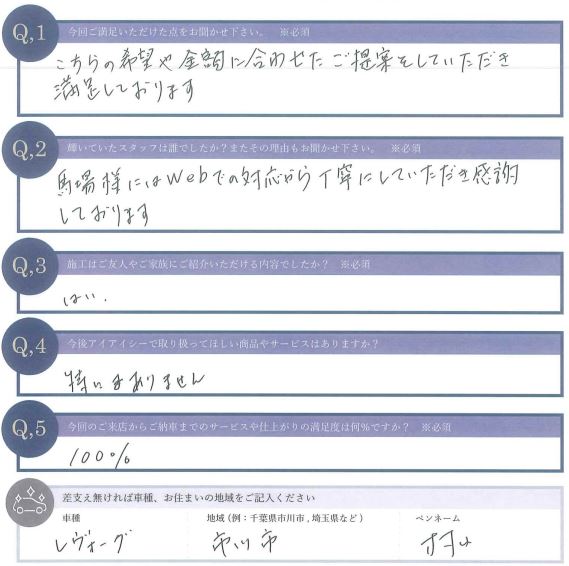 Q,1 今回ご満足いただけた点をお聞かせ下さい。 ※必須
こちらの希望や金額に合わせたご提案をしていただき
満足しております
Q,2 輝いていたスタッフは誰でしたか？またその理由もお聞かせ下さい。 ※必須
馬場様にはWebでの対応から丁寧にしていただき感謝
しております
Q,3 施工はご友人やご家族にご紹介いただける内容でしたか？ ※必須
はい.
Q,4 今後アイアイシーで取り扱ってほしい商品やサービスはありますか？
特にはありません
Q,5 今回のご来店からご納車までのサービスや仕上がりの満足度は何%ですか？ ※必須
100%
差支え無ければ車種、お住まいの地域をご記入ください
車種 地域 (例：千葉県市川市 , 埼玉県など) ペンネーム
レヴォーグ 市川市